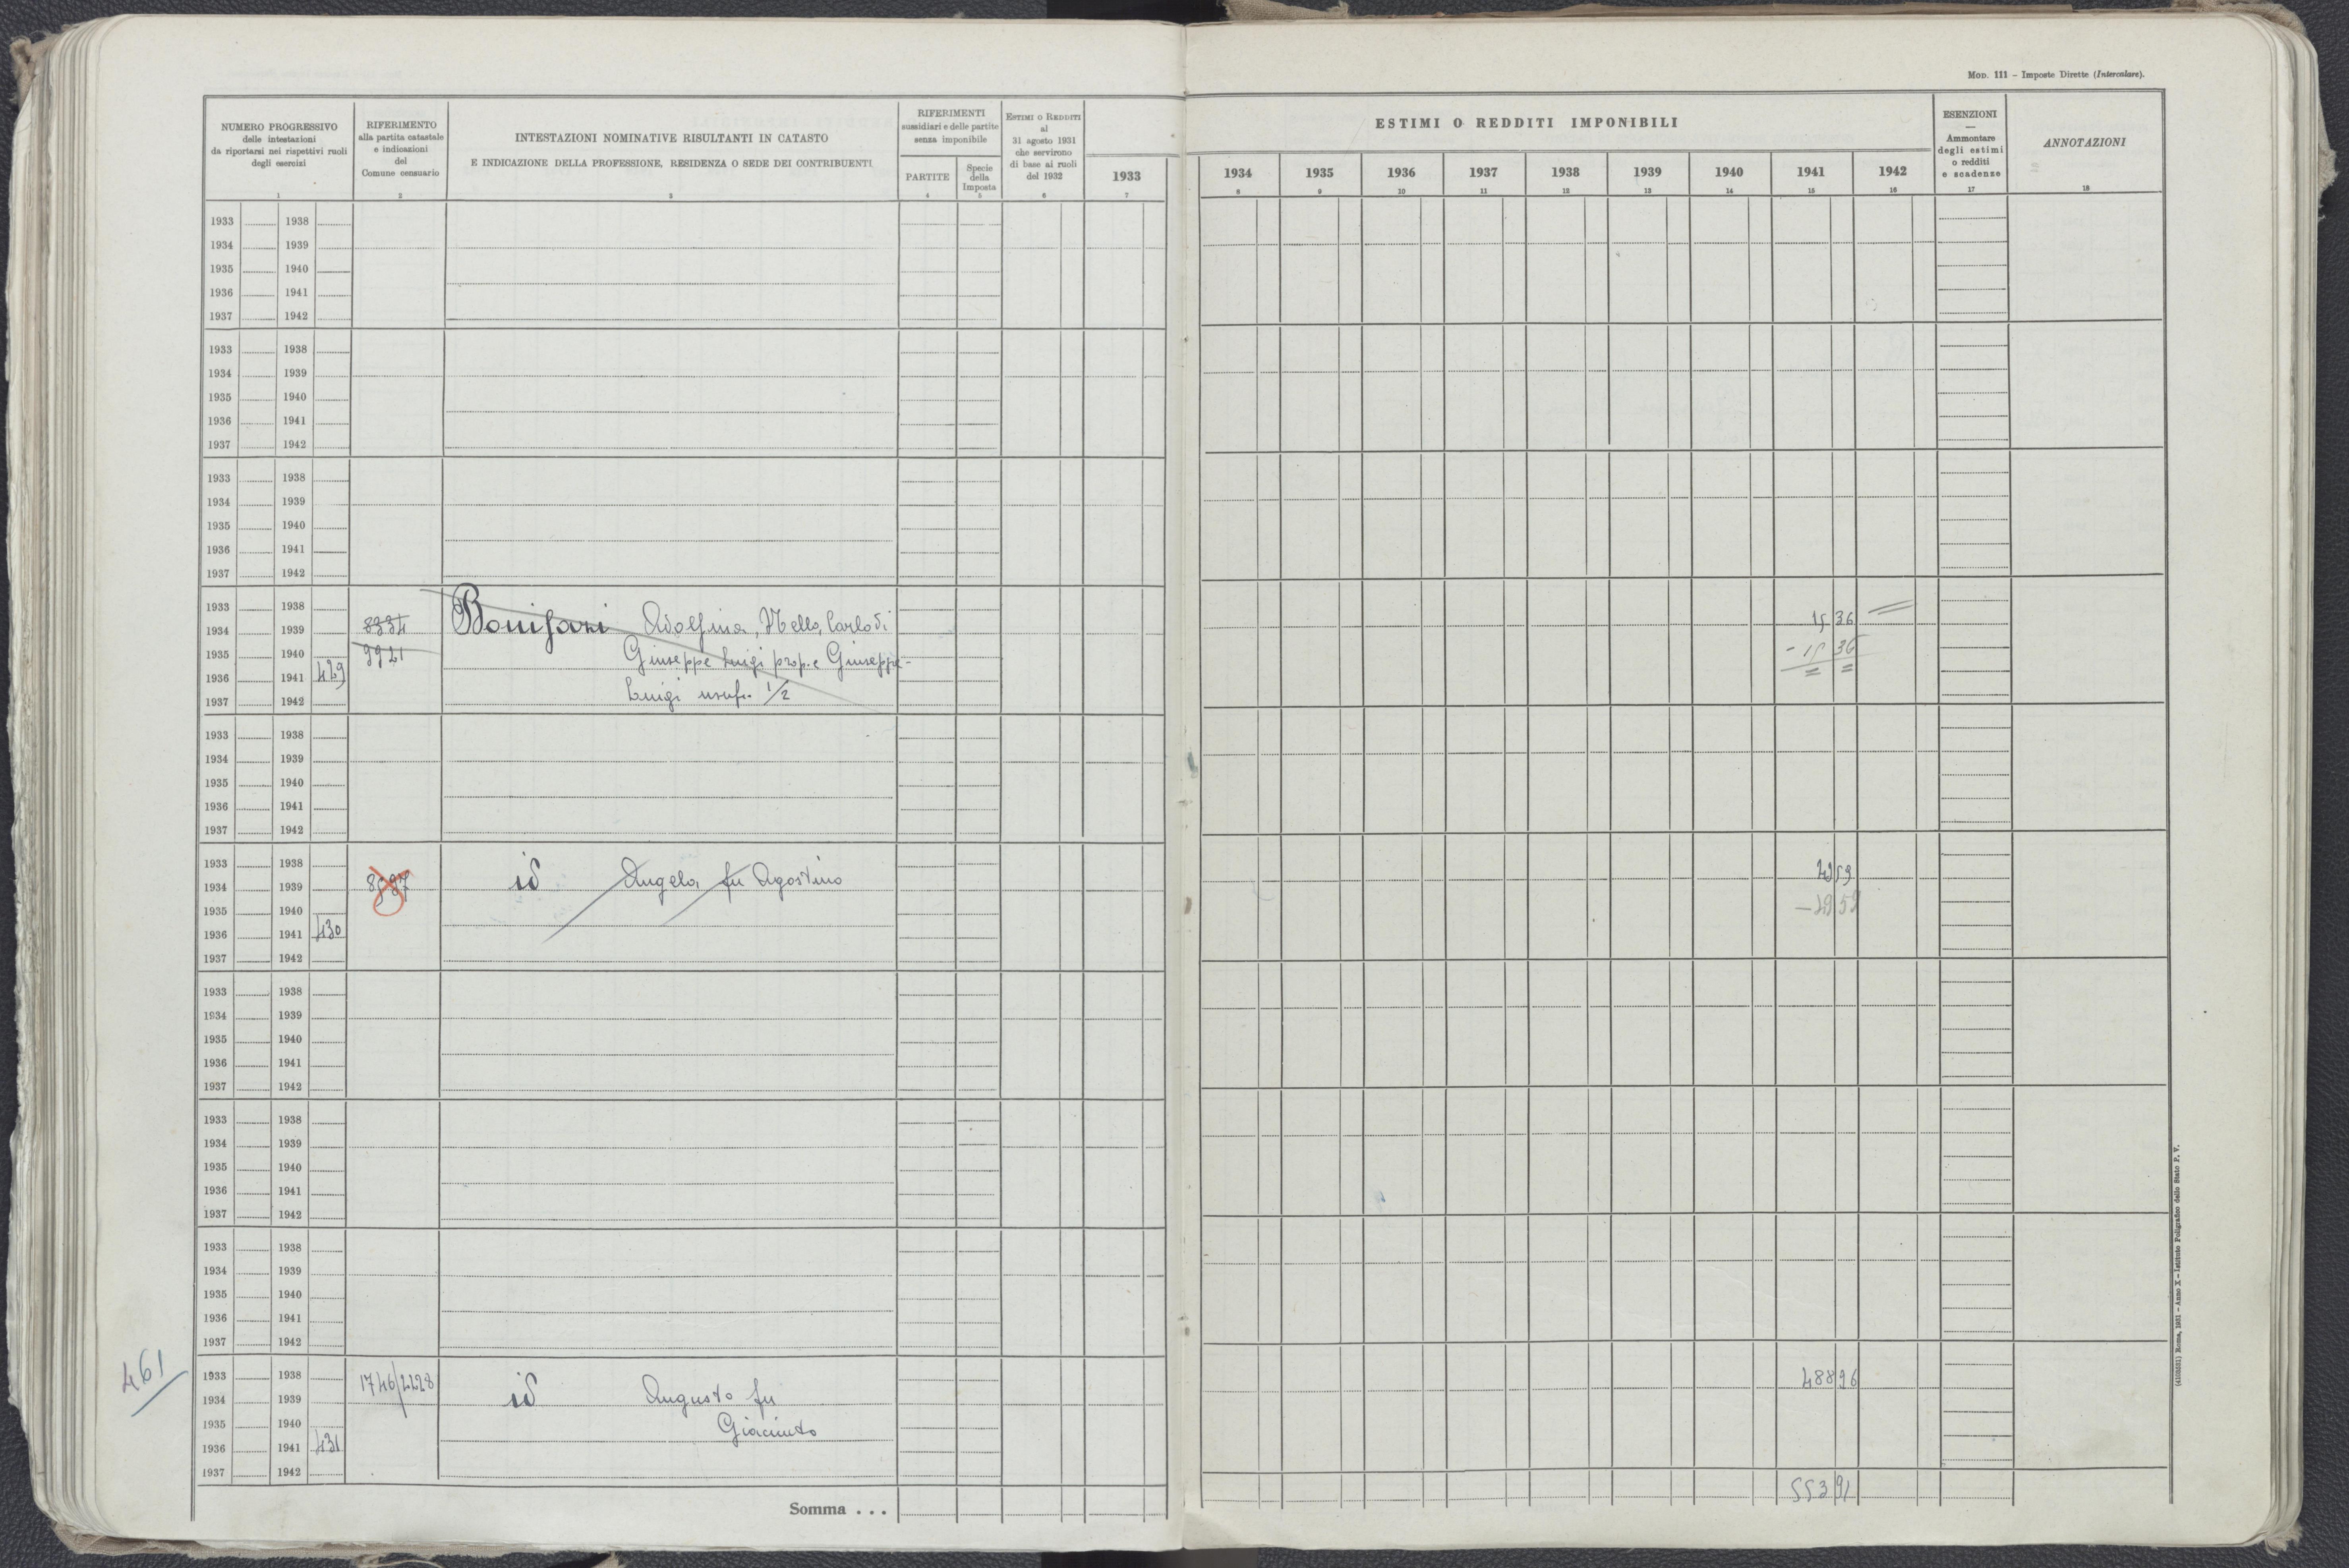 MOD. 111 – Imposte Dirette (Intercalare).
NUMERO PROGRESSIVO
delle intestazioni
da riportarsi nei rispettivi ruoli
degli esercizi
1
RIFERIMENTO
alla partita catastale
e indicazioni
del
Comune censuario
2
INTESTAZIONI NOMINATIVE RISULTANTI IN CATASTO
E INDICAZIONE DELLA PROFESSIONE, RESIDENZA O SEDE DEI CONTRIBUENTI
3
RIFERIMENTI
sussidiari e delle partite
senza imponibile
PARTITE
4
Specie
della
Imposta
5
ESTIMI O REDDITI
al
31 agosto 1931
che servirono
di base ai ruoli
del 1932
6
1933
7
ESTIMI O REDDITI IMPONIBILI
1934 1935 1936 1937 1938 1939 1940 1941 1942
8 9 10 11 12 13 14 15 16
ESENZIONI
—
Ammontare
degli estimi
o redditi
e scadenze
17
ANNOTAZIONI
18
1933 1938
1934 1939
1935 1940
1936 1941
1937 1942
1933 1938
1934 1939
1935 1940
1936 1941
1937 1942
1933 1938
1934 1939
1935 1940
1936 1941
1937 1942
1933 1938
1934 1939 8334 Bonifazi Adolfina, Nello, Carlo di 15 36
1935 1940 9921 Giuseppe Luigi prop. e Giuseppe- - 15 36
1936 1941 429
1937 1942 Luigi usuf. 1/2
1933 1938
1934 1939
1935 1940
1936 1941
1937 1942
1933 1938
1934 1939 id Angela fu Agostino
1935 1940
1936 1941 430
1937 1942
1933 1938
1934 1939
1935 1940
1936 1941
1937 1942
1933 1938
1934 1939
1935 1940
1936 1941
1937 1942
1933 1938
1934 1939
1935 1940
1936 1941
1937 1942
461
1933 1938 1746/2228 488 26
1934 1939 id Augusto fu
1935 1940 Giacinto
1936 1941 431
1937 1942
Somma . . . 553 91
(4103531) Roma, 1931 – Anno X – Istituto Poligrafico dello Stato P. V.